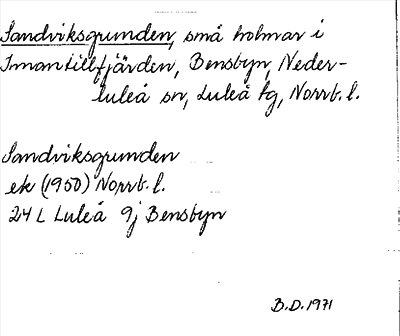 Sandviksgrunden, små holmar i
Innantillfjärden, Bensbyn, Neder-
luleå sn, Luleå kg, Norrb. l.
Sandviksgrunden
ek (1950) Norrb. l.
24 L Luleå 9j Bensbyn
B.D. 1971